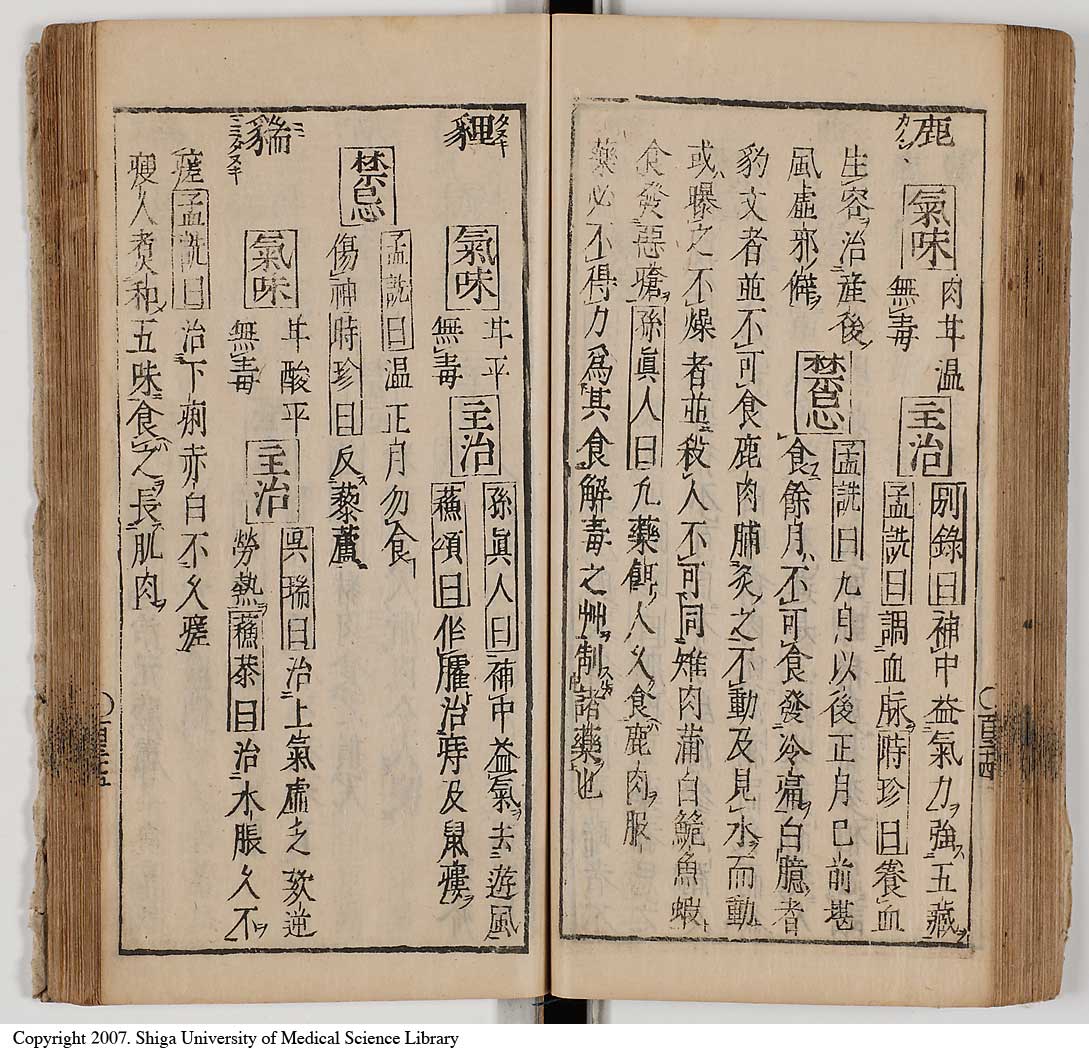 鹿
カノシヽ
氣味
肉甘温
無毒
主治
別錄曰補中益氣力強五藏
孟詵曰調血脉時珍曰養血
生容治産後
風虛邪僻
禁忌
孟詵曰九月以後正月已前堪
食餘月不可食發冷痛白臆者
豹文者並不可食鹿肉脯炙之不動及見水而動
或曝之不燥者並殺人不可同雉肉蒲白鮠魚蝦
食發惡瘡孫眞人曰凡藥餌人久食鹿肉服
藥必不得力爲其食解毒之艸制諸藥也
百三十四
貍
タヌキ
氣味
甘平
無毒
主治
孫眞人曰補中益氣去遊風
蘓頌曰作臛治痔及鼠瘻
禁忌
孟詵曰温正月勿食
傷神時珍曰反藜蘆
貒
ミタヌキ
氣味
甘酸平
無毒
主治
吳瑞曰治上氣虛乏欬逆
勞熱蘓恭曰治水脹久不
瘥孟詵曰治下痢赤白不久瘥
瘦人煑和五味食之長肌肉
百三十五
Copyright 2007. Shiga University of Medical Science Library